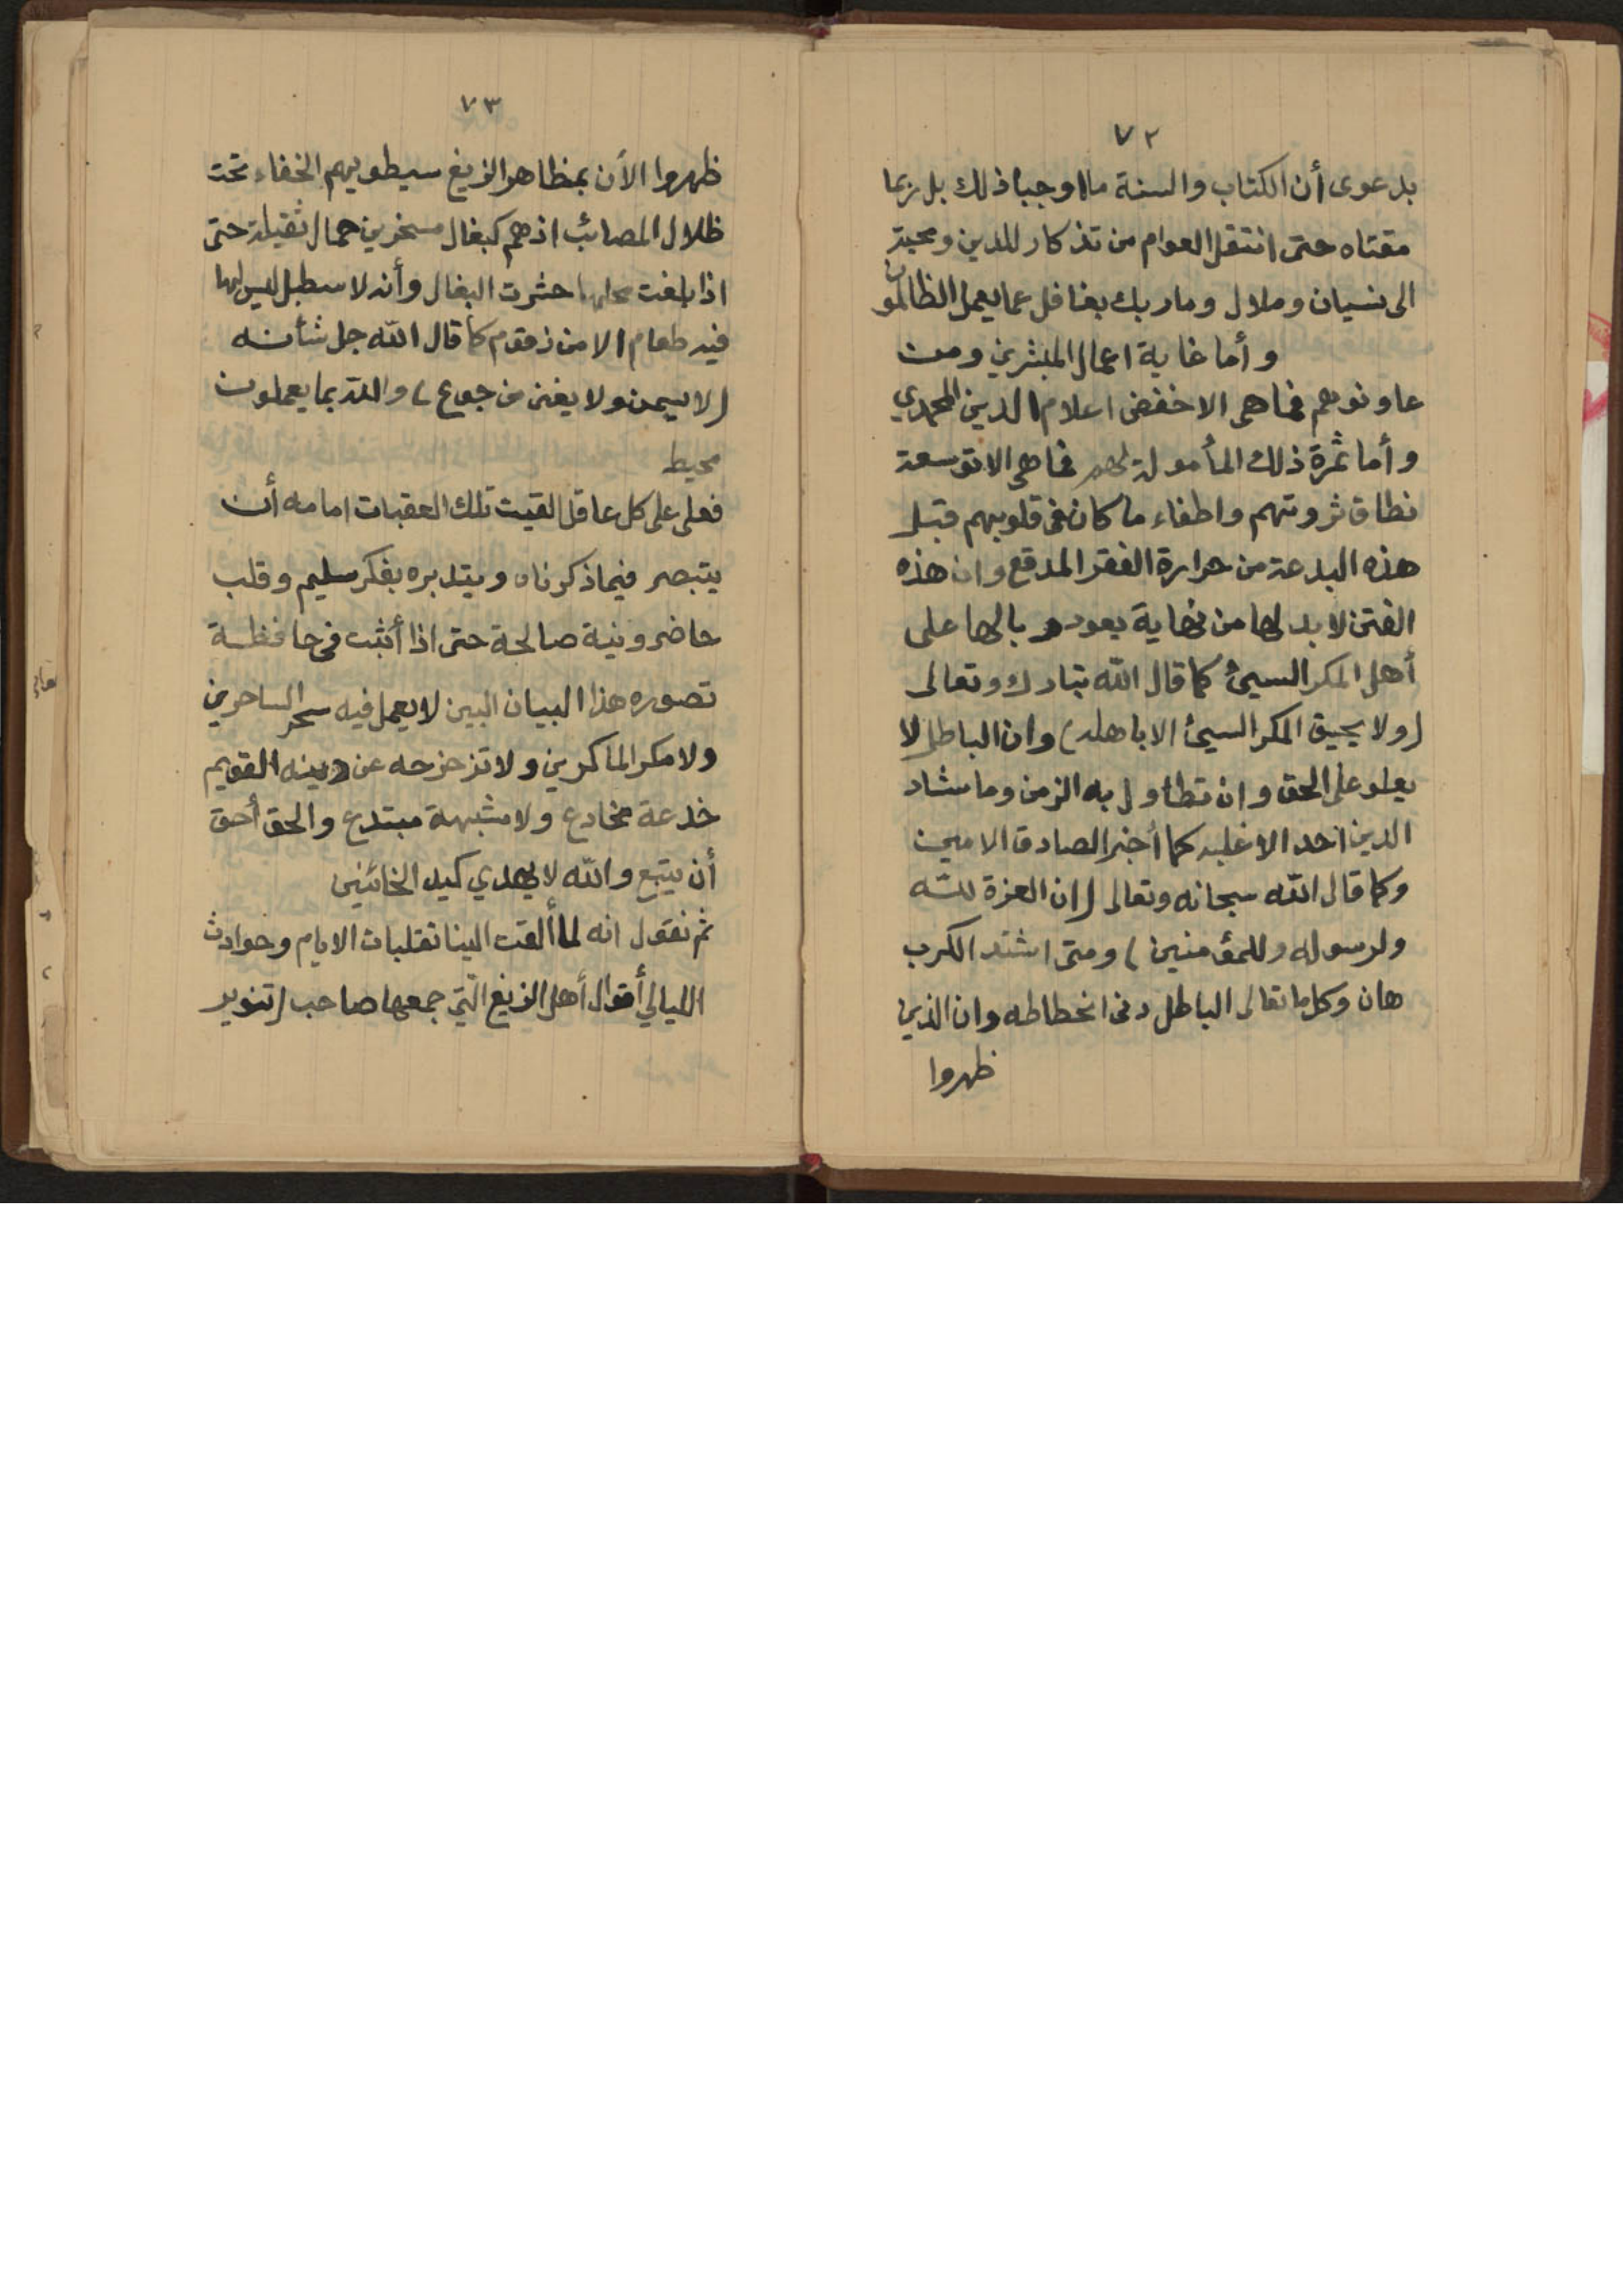 ٧٢
بدعوى أن الكتاب والسنة ما اوجبا ذلك بل ربما
مقتاه حتى انتقل العوام من تذكار للدين ومحبة
الى نسيان وملال وما ربك بغافل عما يعمل الظالمون
وأما غاية اعمال المبشرين ومن
عاونوهم فما هي الا خفض اعلام الدين المحمدي
وأما ثمرة ذلك المأمولة لهم فما هي الا توسعة
نطاق ثروتهم واطفاء ما كان في قلوبهم قبل
هذه البدعة من حرارة الفقر المدقع وان هذه
الفتن لا بد لها من نهاية يعود وبالها على
أهل المكر السيئ كما قال الله تبارك وتعالى
(ولا يحيق المكر السيئ الا باهله) وان الباطل لا
يعلو على الحق وان تطاول به الزمن وما شاد
الدين احد الا غلبه كما أخبر الصادق الامين
وكما قال الله سبحانه وتعالى (ان العزة لله
ولرسوله وللمؤمنين) ومتى اشتد الكرب
هان وكلما تعالى الباطل دنى انحطاطه وان الذين
ظهروا
٧٣
ظهروا الأن بمظاهر الزيغ سيطويهم الخفاء تحت
ظلال المصائب اذ هم كبغال مسخرين حمال ثقيلة حتى
اذا بلغت محلها حشرت البغال وأنه لاسطبل ليس لها
فيه طعام الا من زقوم كما قال الله جل شأنه
(لا يسمن ولا يغنى من جوع) والله بما يعملون
محيط
فعلى على كل عاقل لقيت تلك العقبات امامه أن
يتبصر فيما ذكرناه ويتدبره بفكر سليم وقلب
حاضر ونية صالحة حتى اذا أثبت في حافظة
تصوره هذا البيان البين لا يعمل فيه سحر الساحرين
ولا مكر الماكرين ولا تزحزحه عن دينه القويم
خدعة مخادع ولا شبهة مبتدع والحق أحق
أن يتبع والله لا يهدي كيد الخائنين
ثم نقول انه لما ألقت الينا تقلبات الايام وحوادث
الليالي أقوال أهل الزيغ التي جمعها صاحب (تنوير